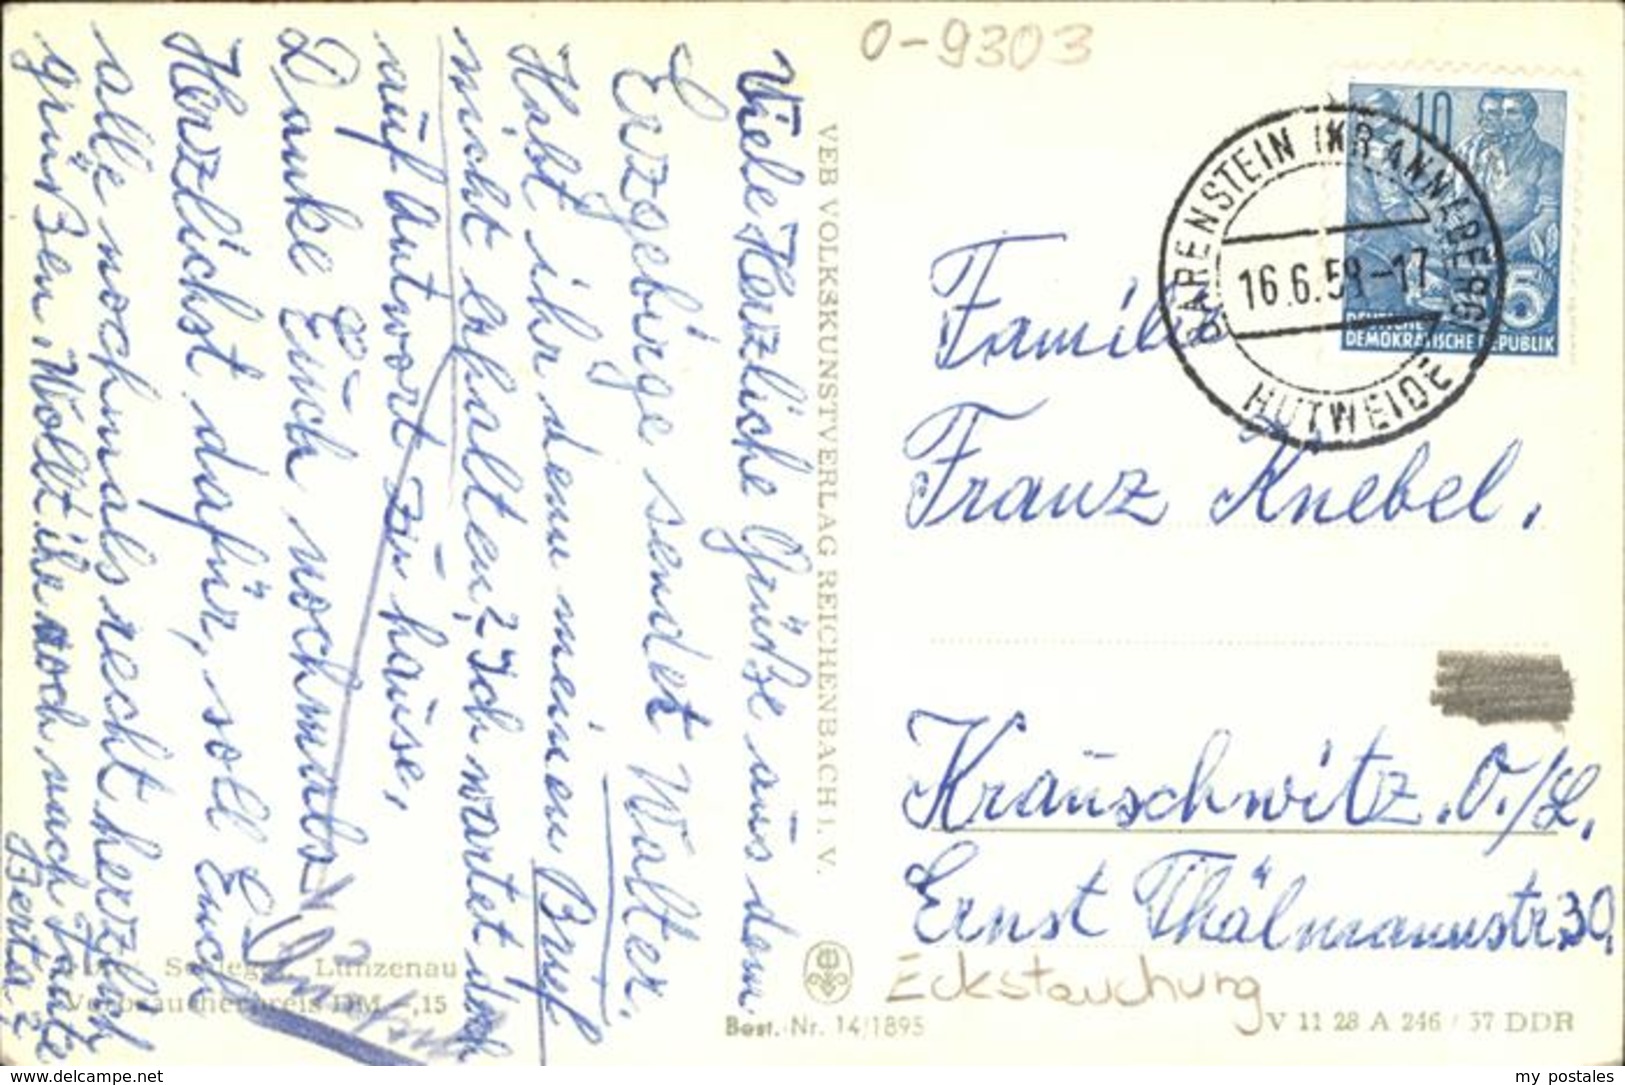 Viele Herzliche Grüße aus dem
Erzgebirge sendet Walter.
Habt ihr denn meinen Brief
nicht erhalten? Ich wartet doch
auf Antwort zu hause,
Danke Euch nochmals
Herzlichst dafür, soll Euch
alle nochmals recht herzlich
grüßen, Wollt ihr noch nach Tante
Berta?
Lunzenau
Verbraucherpreis DM -,15
VEB VOLKSKUNSTVERLAG REICHENBACH I. V.
Best.-Nr. 14/1895
0-9303
10
5
DEUTSCHE
DEMOKRATISCHE REPUBLIK
BÄRENSTEIN (KR ANNABERG)
16.6.59.-17
HUTWEIDE
Familie
Franz Knebel,
Krauschwitz. O./L.
Ernst Thälmannstr. 30,
Eckstauchung
V 11 28 A 246 / 57 DDR
my postales
www.delcampe.net